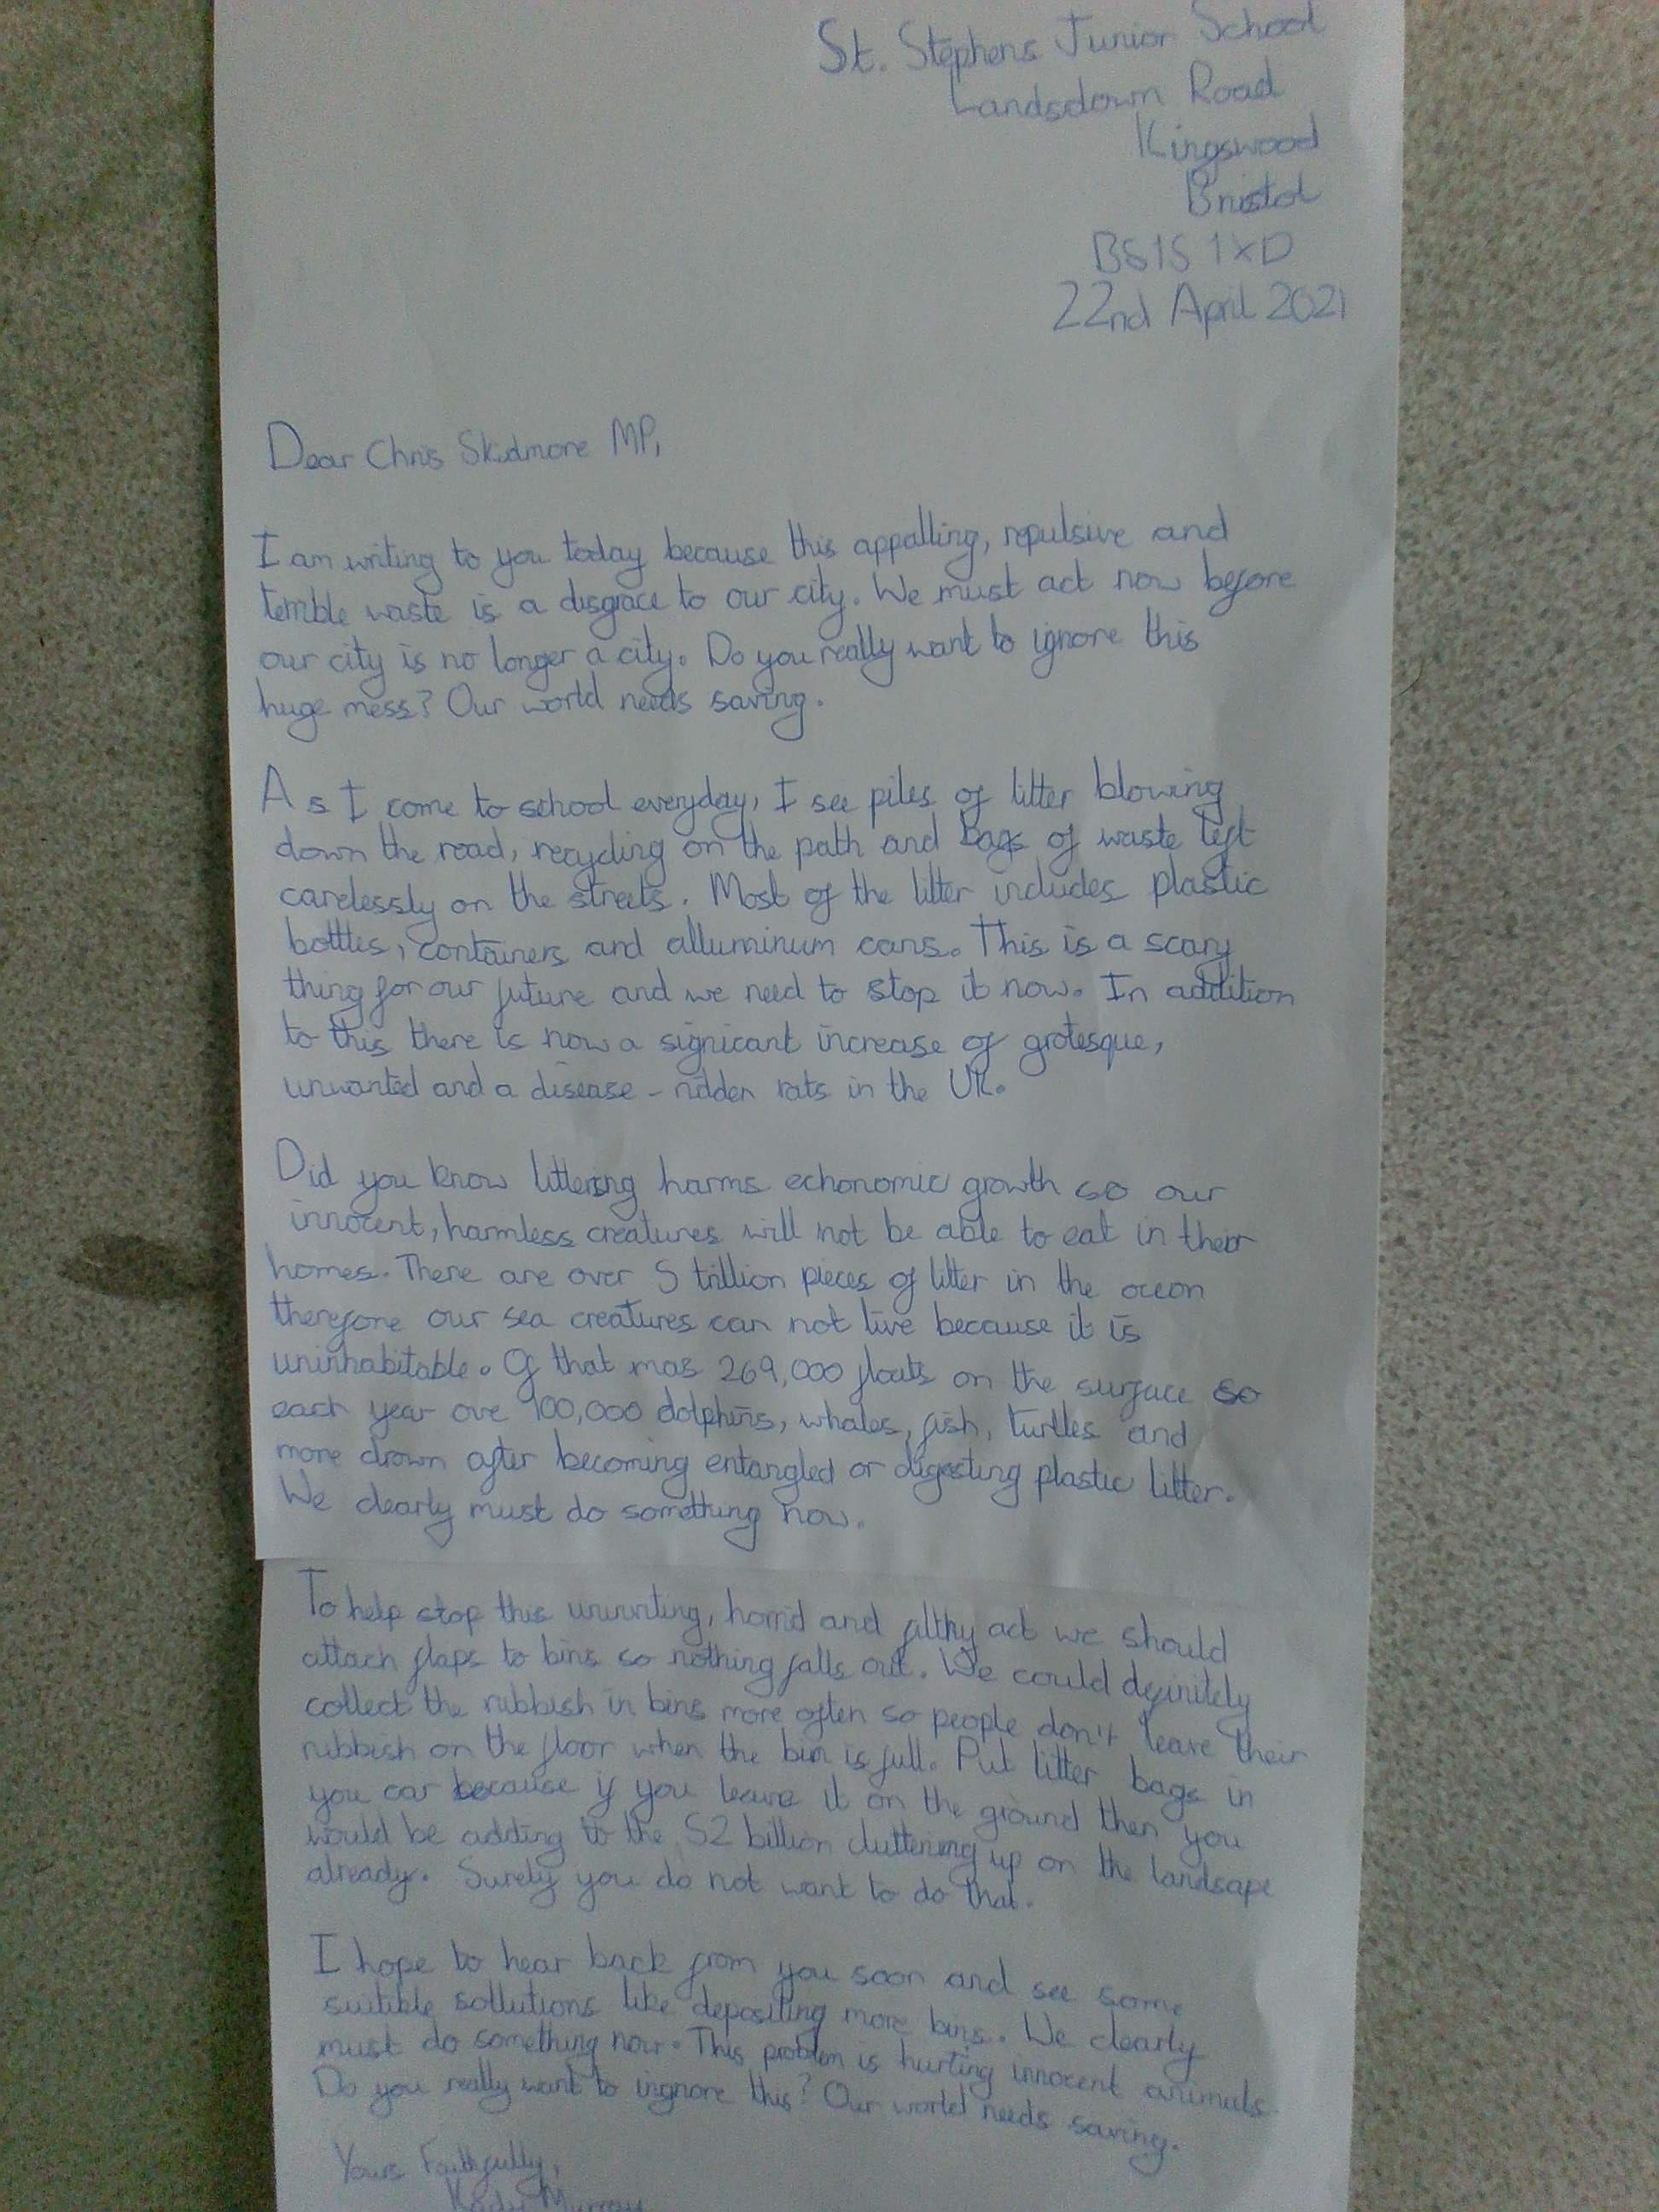 St. Stephens Junior School
Landsdown Road
Kingswood
Bristol
BS15 1XD
22nd April 2021
Dear Chris Skidmore MP,
I am writing to you today because this appalling, repulsive and
terrible waste is a disgrace to our city. We must act now before
our city is no longer a city. Do you really want to ignore this
huge mess? Our world needs saving.
As I come to school everyday, I see piles of litter blowing
down the road, recycling on the path and bags of waste left
carelessly on the streets. Most of the litter includes plastic
bottles, containers and alluminum cans. This is a scary
thing for our future and we need to stop it now. In addition
to this there is now a signicant increase of grotesque,
unwanted and a disease-ridden rats in the UK.
Did you know littering harms echonomic growth so our
innocent, harmless creatures will not be able to eat in their
homes. There are over 5 trillion pieces of litter in the ocean
therefore our sea creatures can not live because it is
uninhabitable. Of that mas 269,000 floats on the surface so
each year ove 100,000 dolphins, whales, fish, turtles and
more drown after becoming entangled or digesting plastic litter.
We clearly must do something now.
To help stop this unwriting, horrid and filthy act we should
attach flaps to bins so nothing falls out. We could definitely
collect the rubbish in bins more often so people don't leave their
rubbish on the floor when the bin is full. Put litter bags in
you car because if you leave it on the ground then you
would be adding to the 52 billion cluttering up on the landsape
already. Surely you do not want to do that.
I hope to hear back from you soon and see some
suitible sollutions like depositing more bins. We clearly
must do something now. This problem is hurting innocent animals.
Do you really want to ingnore this? Our world needs saving.
Yours Faithfully,
Murray